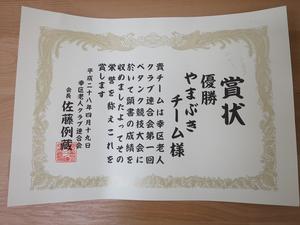 賞状
優勝
やまぶき
チーム様
貴チームは幸区老人
クラブ連合会第一回
ペタンク競技大会に
於いて頭書の成績を
収めましたよってその
栄誉を称えこれを
賞します
平成二十八年四月十九日
幸区老人クラブ連合会
会長 佐藤例蔵